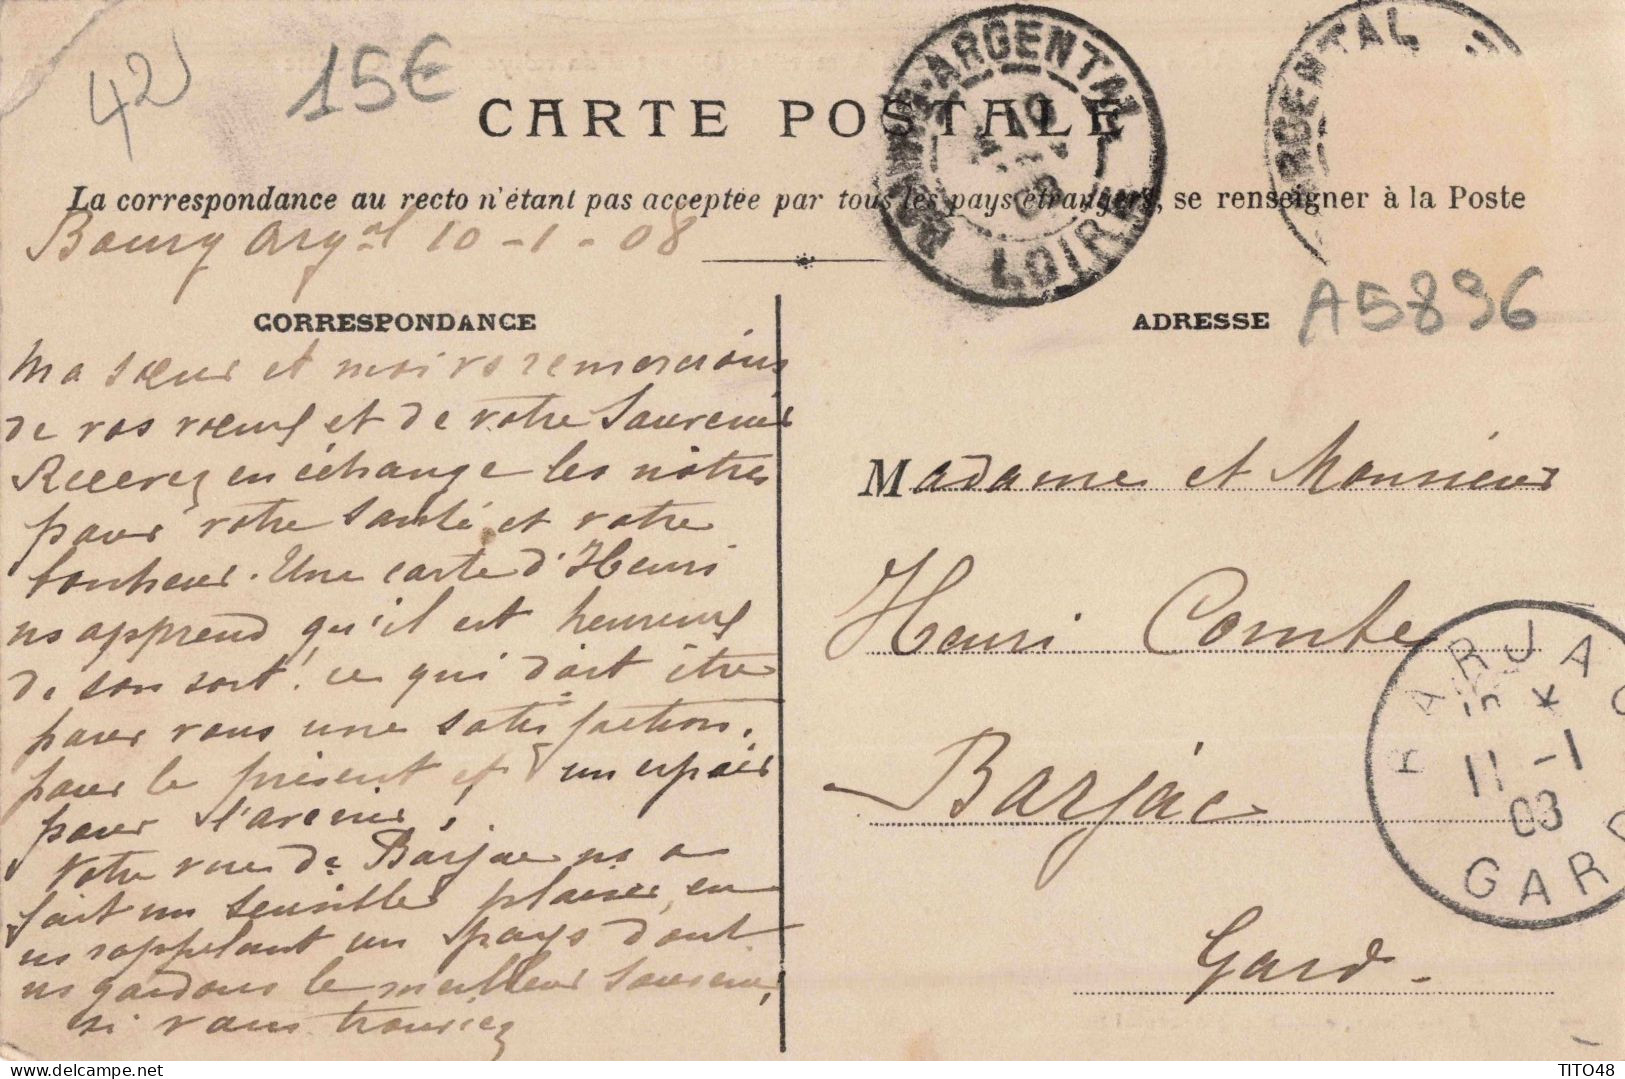 42
15€
CARTE POSTALE
La correspondance au recto n'étant pas acceptée par tous les pays étrangers, se renseigner à la Poste
BOURG-ARGENTAL
LOIRE
ARGENTAL
Bourg Argal 10-1-08
CORRESPONDANCE
Ma sœur et moi vs remercions
de vos vœux et de votre souvenir
Recevez en échange les nôtres
pour votre santé et votre
bonheur. Une carte d'Henri
ns apprend qu'il est heureux
de son sort! ce qui doit être
pour vous une satisfaction.
pour le présent et un espoir
pour l'avenir!
Votre vue de Barjac ns a
fait un sensible plaisir, en
ns rappelant un pays dont
ns gardons le meilleur souvenir,
si vous trouviez
ADRESSE
A5896
Madame et Monsieur
Henri Comte
Barjac
Gard.
BARJAC
11 -1
08
GARD
TITO48